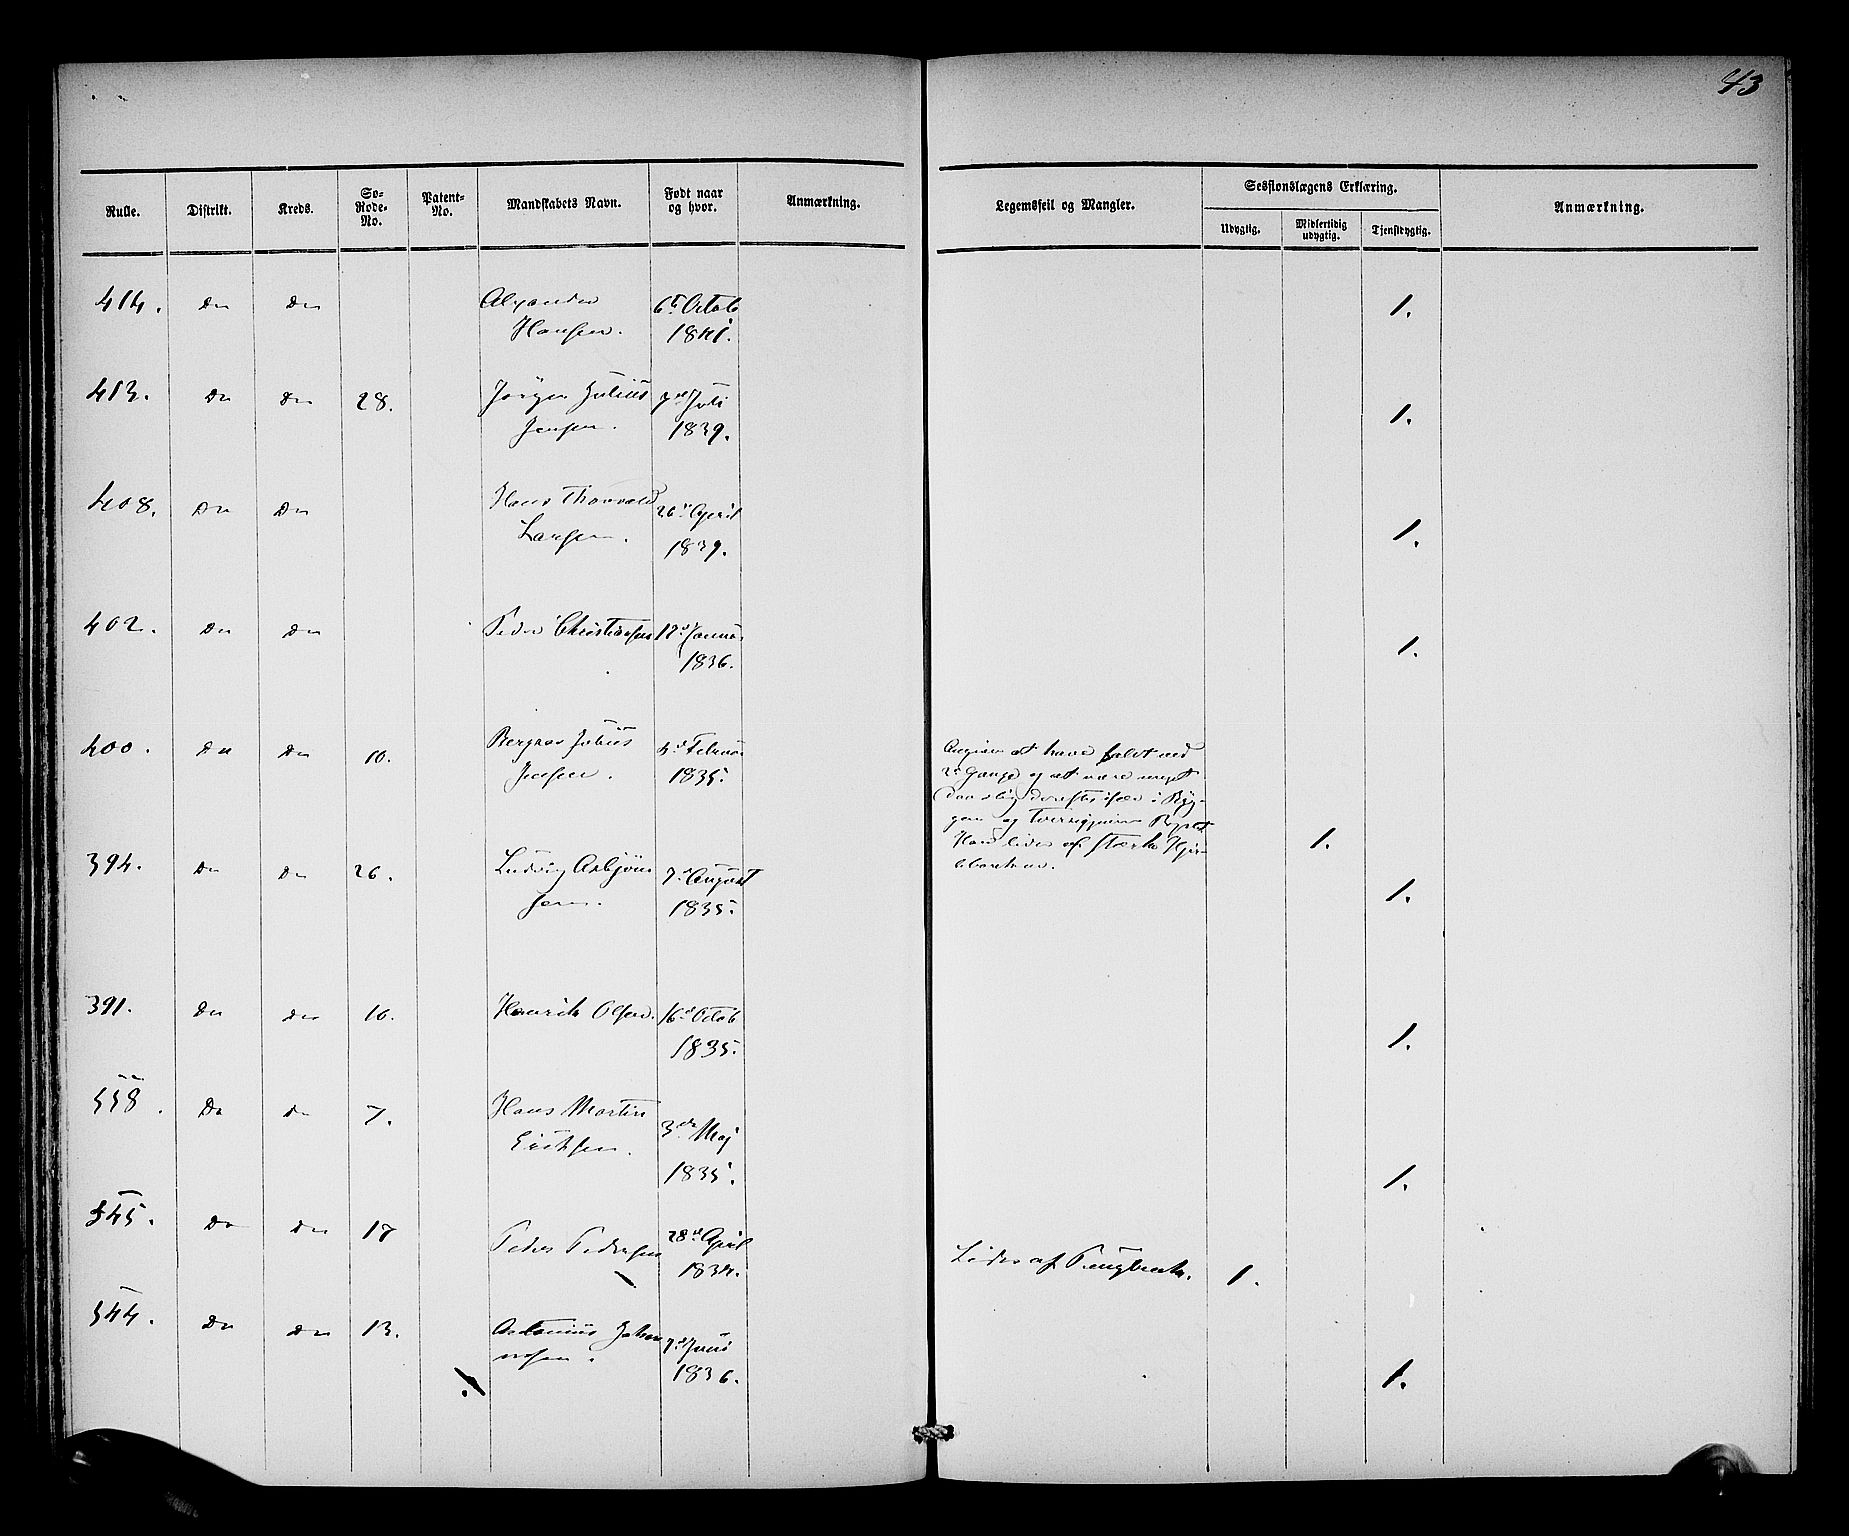 43
Rulle. Distrikt. Kreds. Sø-Rode-No. Patent-No. Mandskabets Navn. Født naar og hvor. Anmærkning. Legemsfeil og Mangler. Sessionslægens Erklæring. Anmærkning.
Udygtig. Midlertidig udygtig. Tjenstdygtig.
414. Do Do Alexander 6te Octob 1.
Hansen. 1841.
413. Do Do 28. Jörgen Julius 7de Juli 1.
Jensen. 1839.
408. Do Do Hans Thorvald 26de April 1.
Larsen. 1839.
402. Do Do Peder Christiansen 1.
1836.
400. Do Do 10. Julius
Jensen. 1835.
at have faldt ned
2de Gange og at være meget
daarlig derefter især i Ryg-
gen og
Han lider af stærk Hjer- 1.
tebanken.
394. Do Do 26. Ludvig Asbjörn 7de August 1.
sen. 1835.
391. Do Do 10. Henrik Olsen. 16de Octob 1.
1835.
558. Do Do 7. Hans Martin 3die Maj 1.
Eriksen. 1835.
545. Do Do 17 Peder Pedersen 28de April Lider af 1.
1834.
544. Do Do 13. Antonius Johan 7de Juni 1.
nesen. 1836.